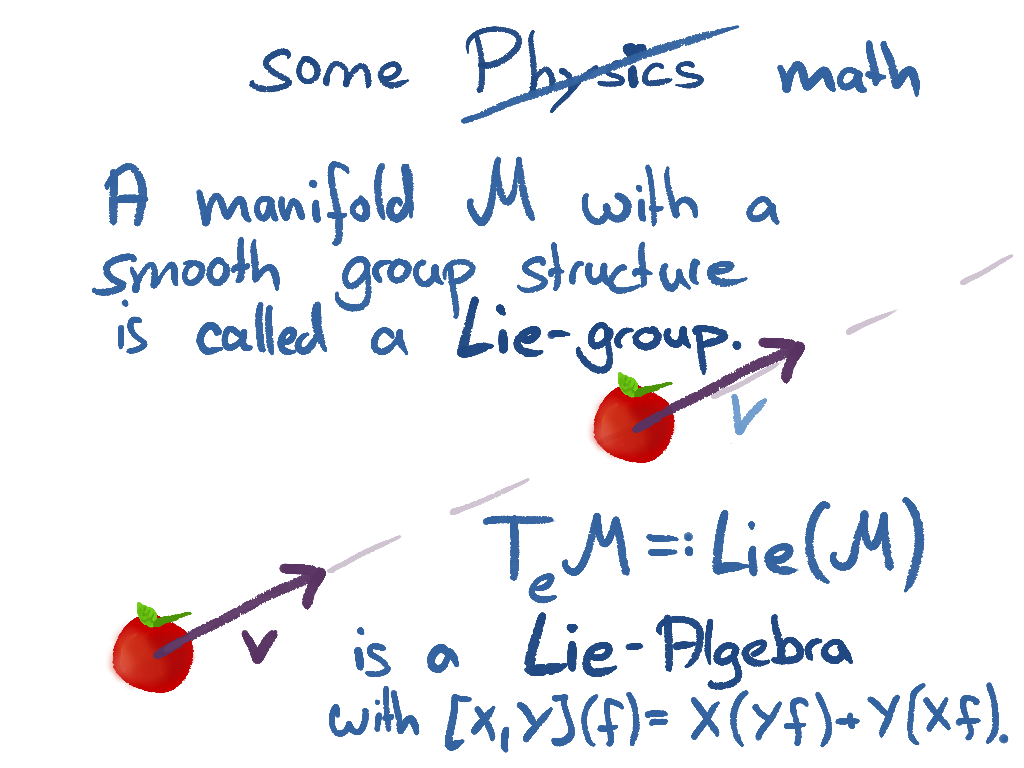 some Physics math
A manifold M with a
smooth group structure
is called a Lie-group.
v
T_e M =: Lie(M)
v
is a Lie-Algebra
with [X,Y](f)= X(Yf)+Y(Xf).